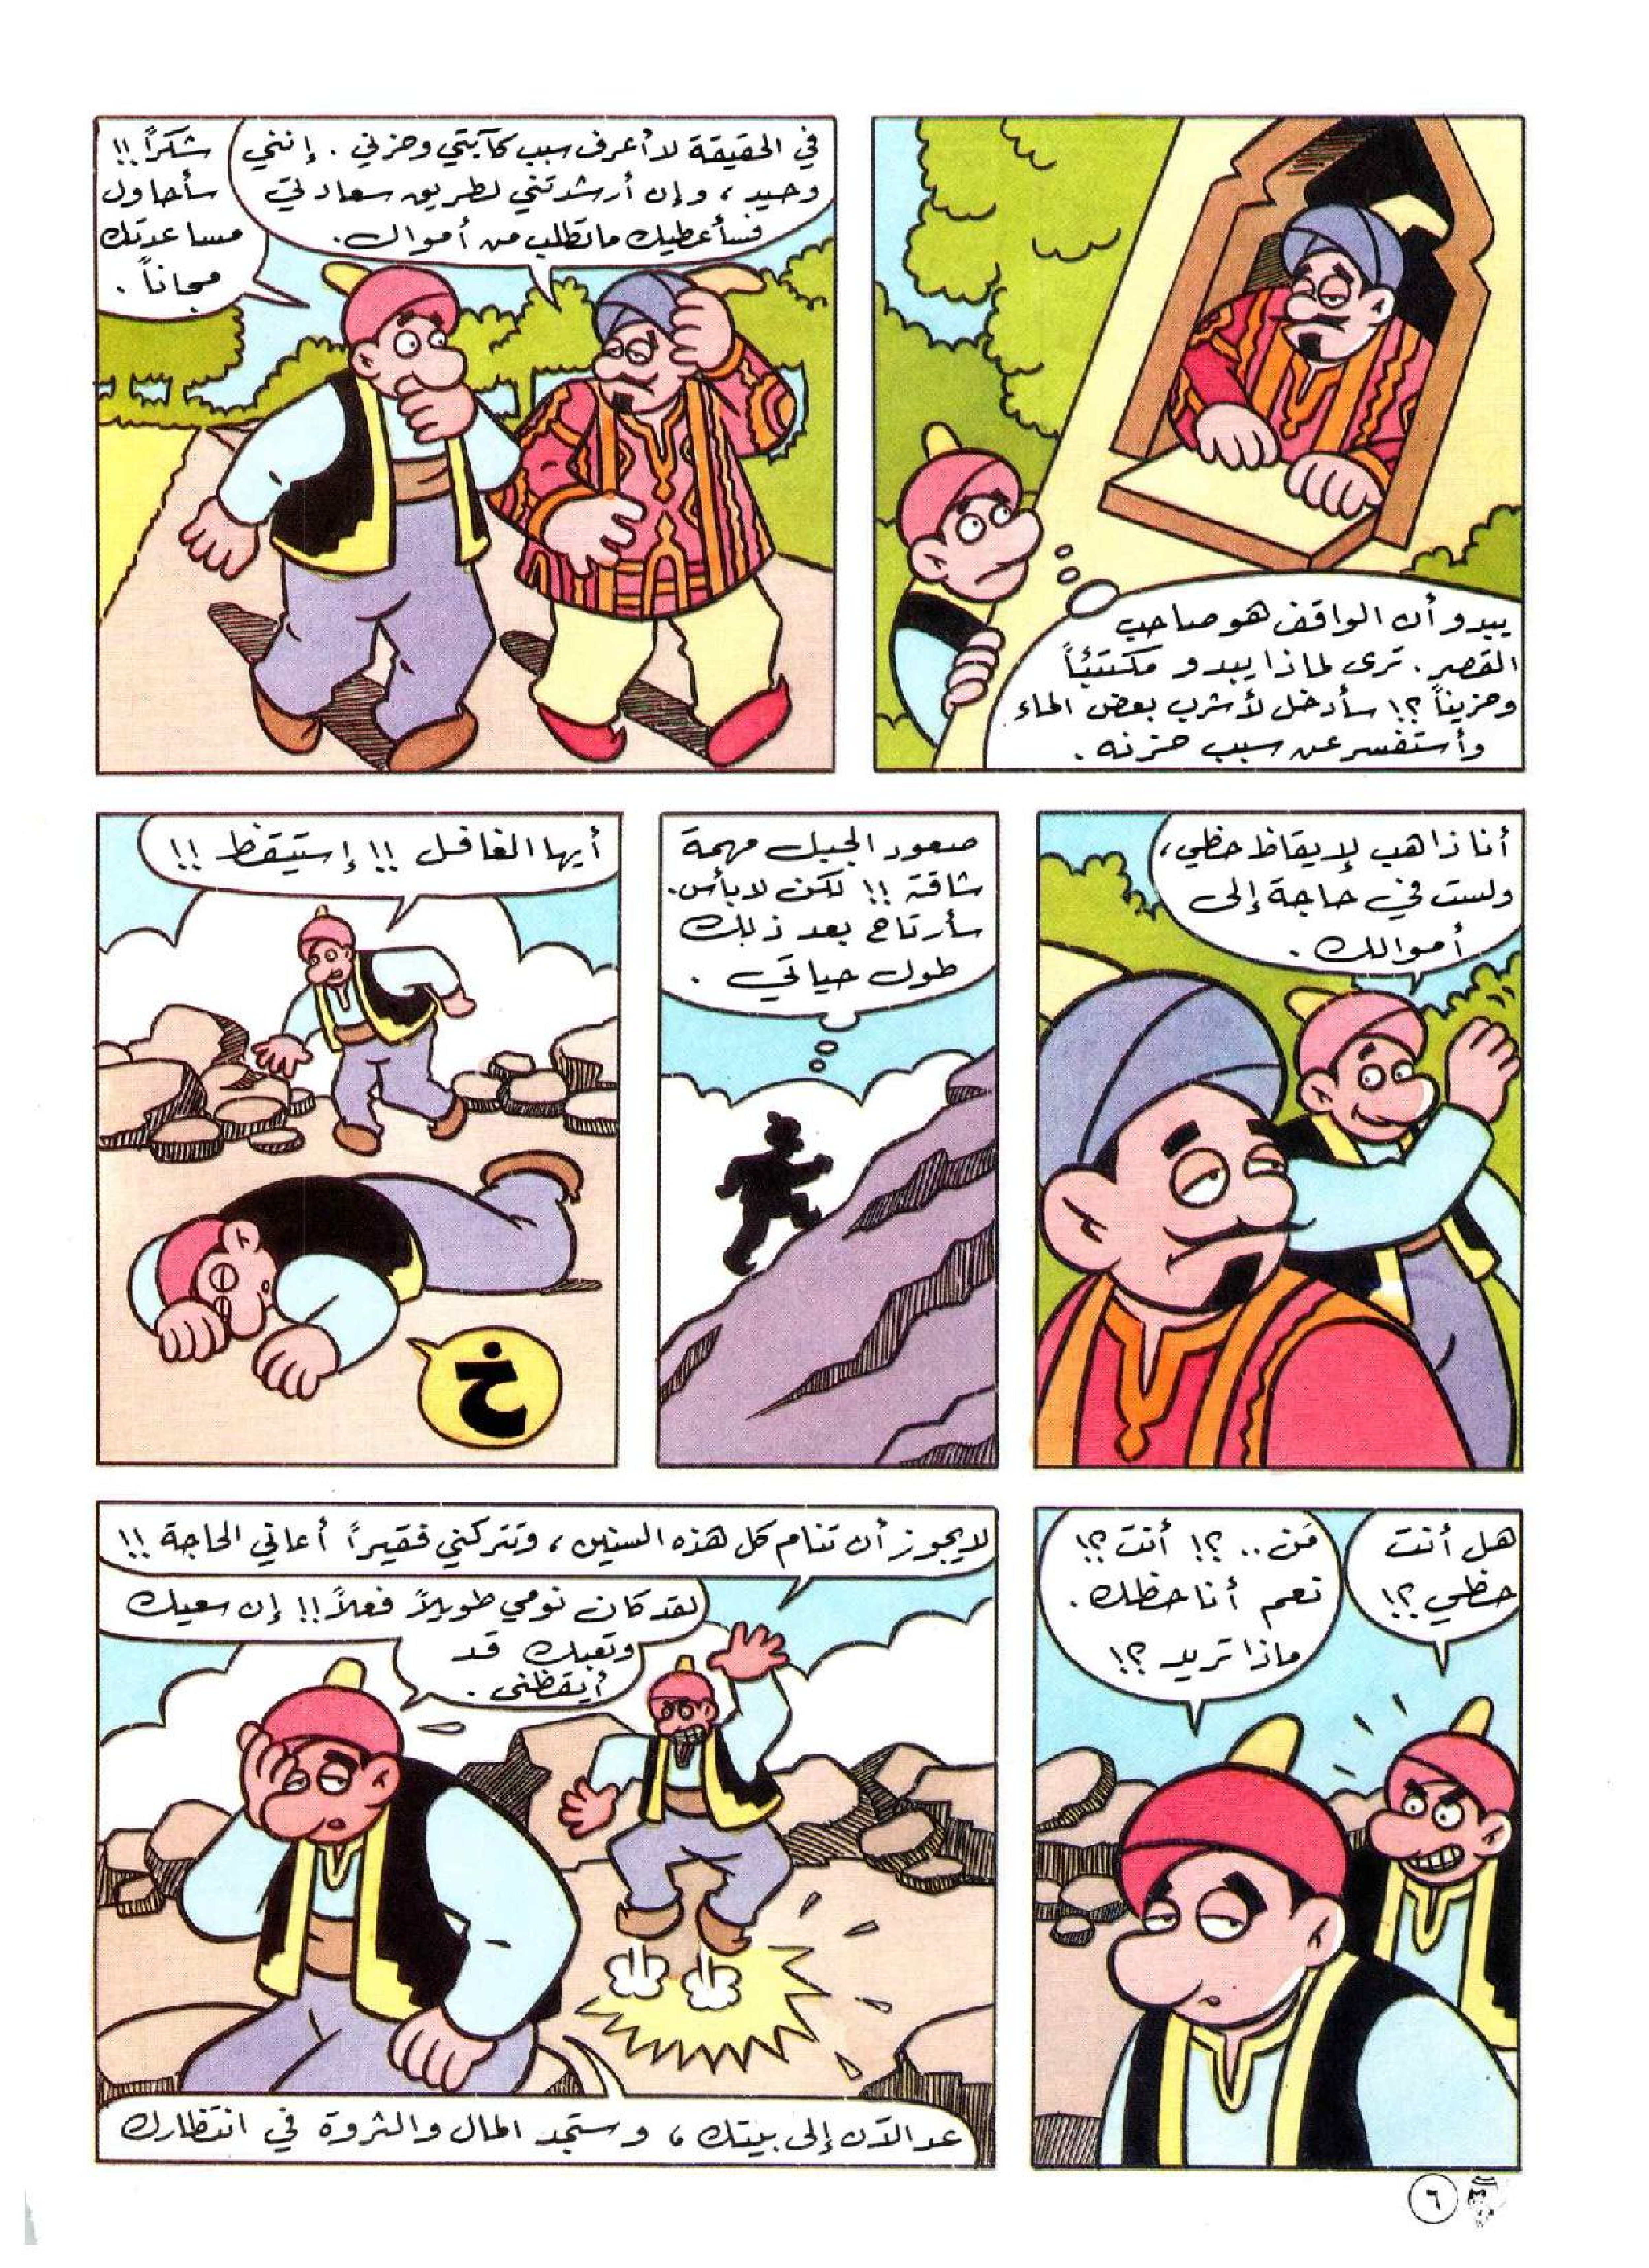 يبدو أن الواقف هو صاحب
القصر. ترى لماذا يبدو مكتئباً
وحزيناً؟! سأدخل لأشرب بعض الماء
وأستفسر عن سبب حزنه.
في الحقيقة لا أعرف سبب كآبتي وحزني. إنني
وحيد، وإن أرشدتني لطريق سعادتي
فسأعطيك ما تطلب من أموال.
شكراً!!
سأحاول
مساعدتك
مجاناً.
أنا ذاهب لإيقاظ حظي،
ولست في حاجة إلى
أموالك.
صعود الجبل مهمة
شاقة!! لكن لا بأس.
سأرتاح بعد ذلك
طول حياتي.
أيها الغافل!! إستيقظ!!
خ
هل أنت
حظي؟!
مَن..؟! أنت؟!
نعم أنا حظك.
ماذا تريد؟!
لا يجوز أن تنام كل هذه السنين، وتتركني فقيراً أعاني الحاجة!!
لقد كان نومي طويلاً فعلاً!! إن سعيك
وتعبك قد
أيقظني.
عد الآن إلى بيتك، وستجد المال والثروة في انتظارك
٦